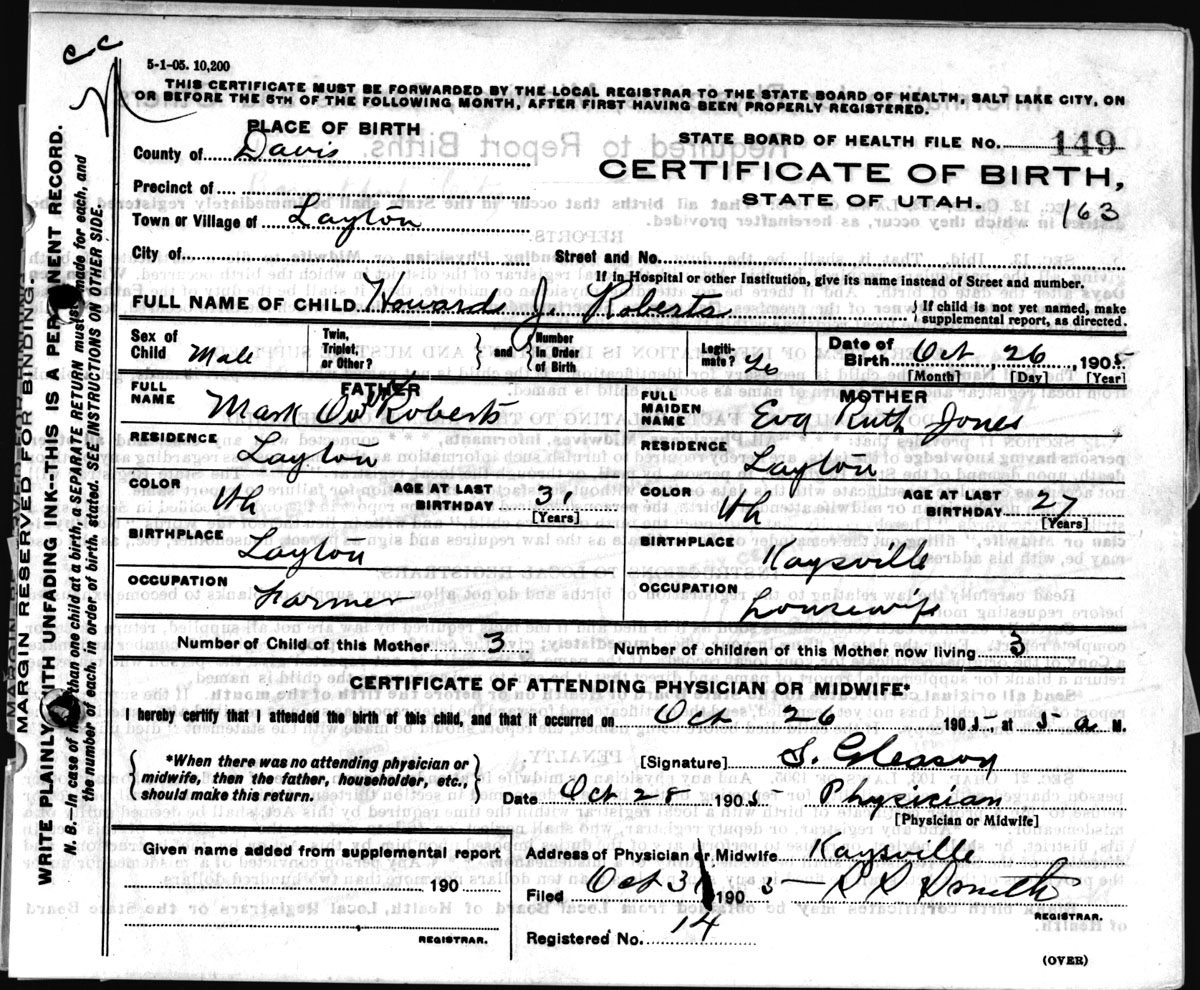 c c
5-1-05. 10,200
THIS CERTIFICATE MUST BE FORWARDED BY THE LOCAL REGISTRAR TO THE STATE BOARD OF HEALTH, SALT LAKE CITY, ON
OR BEFORE THE 5TH OF THE FOLLOWING MONTH, AFTER FIRST HAVING BEEN PROPERLY REGISTERED.
PLACE OF BIRTH
STATE BOARD OF HEALTH FILE No. 149
County of Davis
CERTIFICATE OF BIRTH,
Precinct of
STATE OF UTAH.
163
Town or Village of Layton
City of Street and No.
If in Hospital or other Institution, give its name instead of Street and number.
FULL NAME OF CHILD Howard J. Roberts { If child is not yet named, make supplemental report, as directed.
Sex of Child Male Twin, Triplet, or Other? } and { Number In Order of Birth Legiti-mate? Yes Date of Birth Oct 26, 1905
[Month] [Day] [Year]
FATHER
FULL NAME Mark Roberts
RESIDENCE Layton
COLOR Wh AGE AT LAST BIRTHDAY 31
[Years]
BIRTHPLACE Layton
OCCUPATION Farmer
MOTHER
FULL MAIDEN NAME Eva Ruth Jones
RESIDENCE Layton
COLOR Wh AGE AT LAST BIRTHDAY 27
[Years]
BIRTHPLACE Kaysville
OCCUPATION housewife
Number of Child of this Mother 3 Number of children of this Mother now living 3
CERTIFICATE OF ATTENDING PHYSICIAN OR MIDWIFE*
I hereby certify that I attended the birth of this child, and that it occurred on Oct 26 1905, at 5 a. M.
{ *When there was no attending physician or midwife, then the father, householder, etc., should make this return. }
[Signature] S. Gleason
Date Oct 28 1905 Physician
[Physician or Midwife]
Given name added from supplemental report
190
REGISTRAR.
Address of Physician or Midwife Kaysville
Filed Oct 31 190
REGISTRAR.
Registered No. 14
(OVER)
MARGIN RESERVED FOR BINDING.
WRITE PLAINLY WITH UNFADING INK--THIS IS A PERMANENT RECORD.
N. B.—In case of more than one child at a birth, a SEPARATE RETURN must be made for each, and
the number of each, in order of birth, stated. SEE INSTRUCTIONS ON OTHER SIDE.